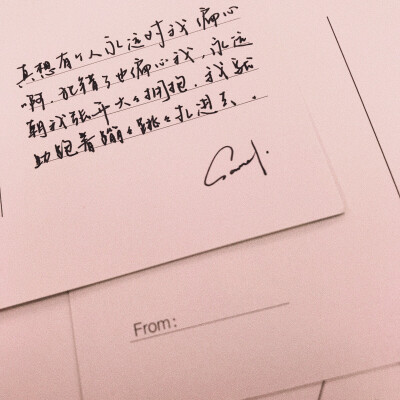 真想有个人永远对我偏心
啊，犯错了也偏心我，永远
朝我张开大大拥抱，我就
助跑着蹦蹦跳跳扎进去。
From: